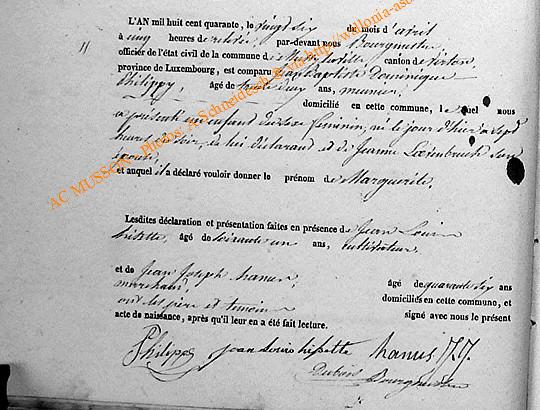 11
L'AN mil huit cent quarante, le vingt six du mois d'avril
à cinq heures de relevée, par-devant nous Bourgmestre
officier de l'état civil de la commune de canton de Virton,
province de Luxembourg, est comparu Jean Baptiste Dominique
Philippy, âgé de trente deux ans, meunier,
domicilié en cette commune, lequel nous
a présenté un enfant du sexe féminin, né le jour d'hier à sept
heures du soir, de lui déclarant et de Jeanne son
épouse,
et auquel il a déclaré vouloir donner le prénom de Marguerite.
Lesdites déclaration et présentation faites en présence de Jean Louis
hisette, âgé de soixante un ans, cultivateur,
et de Jean Joseph hanus, âgé de quarante six ans
marchand, domiciliés en cette commune, et
ont les père et temoin signé avec nous le présent
acte de naissance, après qu'il leur en a été fait lecture.
Philippy Jean Louis hisette hanus J.J.
Dubois
Bourgmestre
AC MUSSON - Photos: A Schneidesch @ via http://wallonia-aso